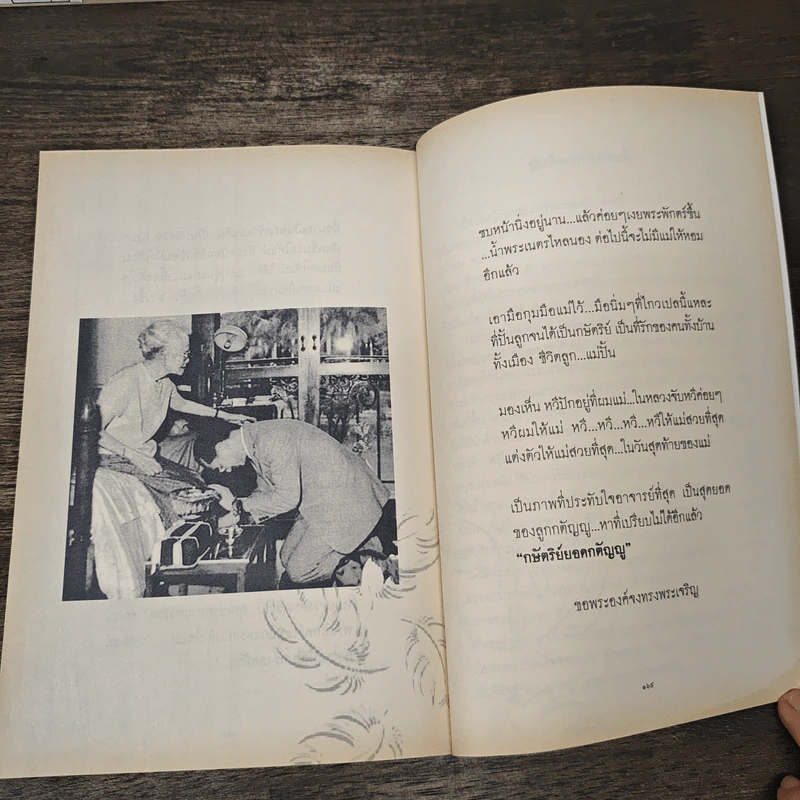 ซบหน้านิ่งอยู่นาน...แล้วค่อยๆเงยพระพักตร์ขึ้น
...น้ำพระเนตรไหลนอง ต่อไปนี้จะไม่มีแม่ให้หอม
อีกแล้ว
เอามือกุมมือแม่ไว้...มือนิ่มๆที่ไกวเปลนี้แหละ
ที่ปั้นลูกจนได้เป็นกษัตริย์ เป็นที่รักของคนทั้งบ้าน
ทั้งเมือง ชีวิตลูก...แม่ปั้น
มองเห็น หวีปักอยู่ที่ผมแม่...ในหลวงจับหวีค่อยๆ
หวีผมให้แม่ หวี...หวี...หวี...หวีให้แม่สวยที่สุด
แต่งตัวให้แม่สวยที่สุด...ในวันสุดท้ายของแม่
เป็นภาพที่ประทับใจอาจารย์ที่สุด เป็นสุดยอด
ของลูกกตัญญู...หาที่เปรียบไม่ได้อีกแล้ว
“กษัตริย์ยอดกตัญญู”
ขอพระองค์จงทรงพระเจริญ
๑๖๙